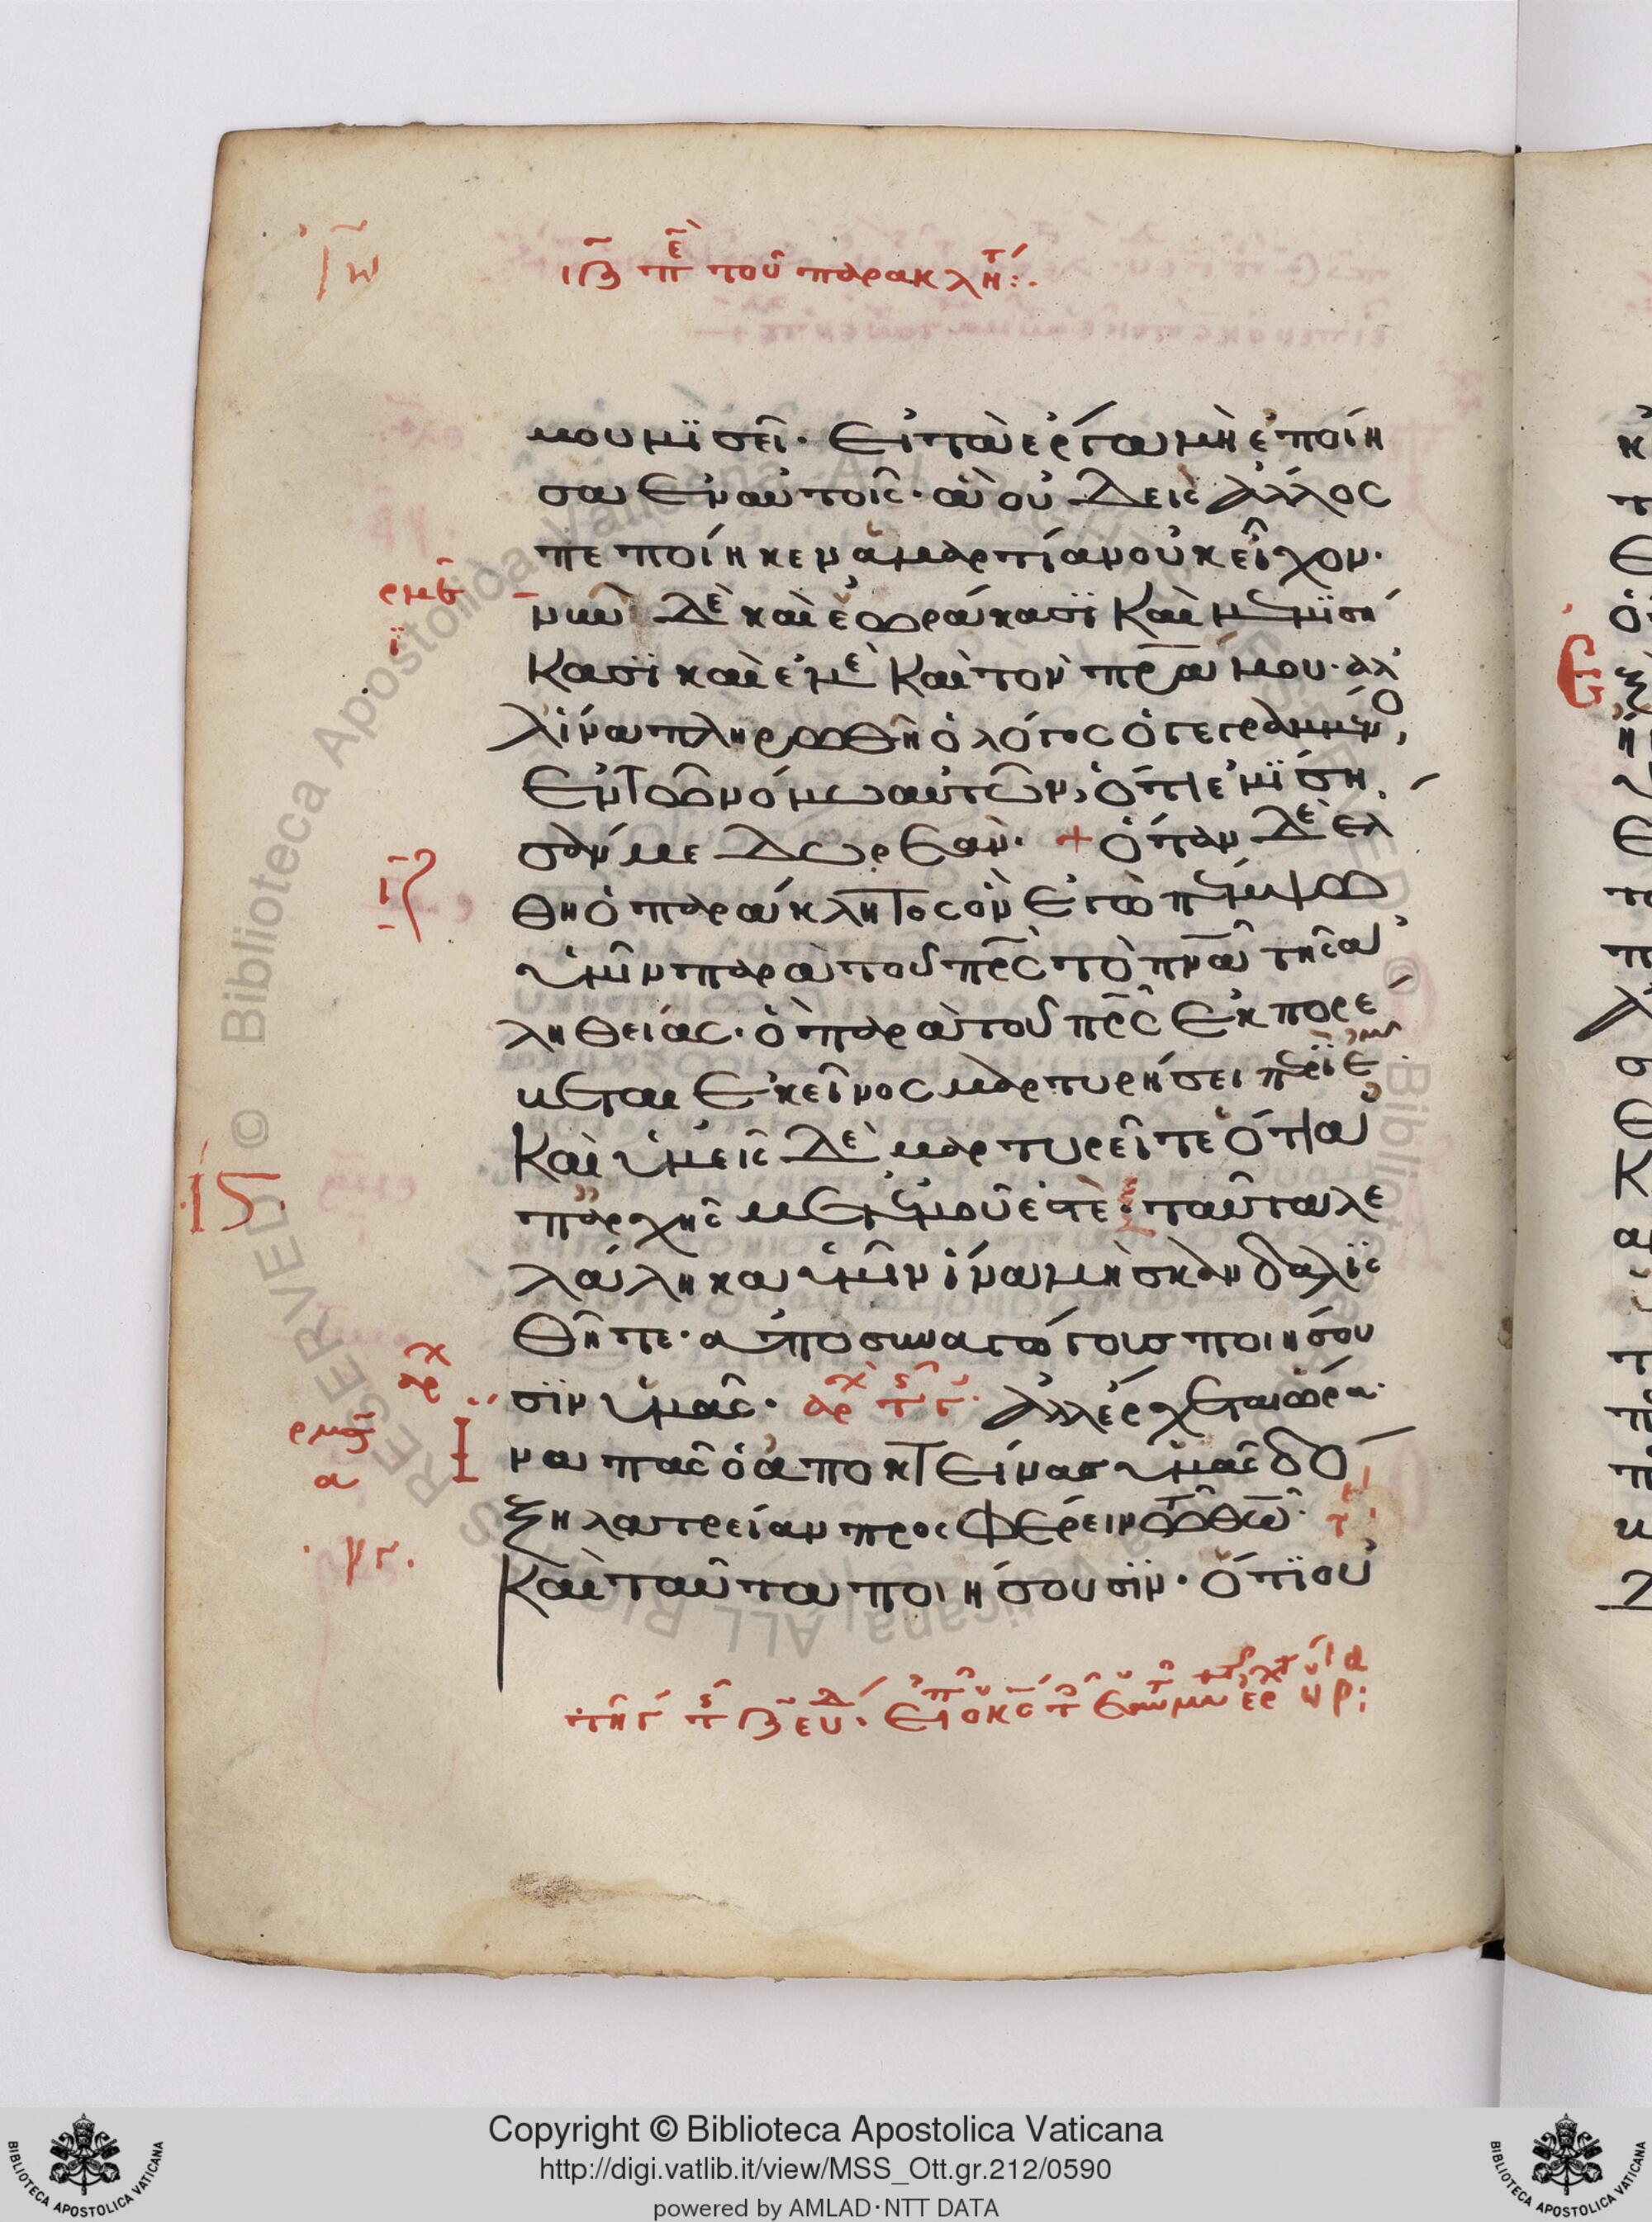 Ἰω
ιζ πε τοῦ παρακλή
μου μϊσεῖ· Εἰ τὰ ἐργα μὴ ἐποίη
σα ἐν αὐτοῖς· ἃ οὐδεὶς ἄλλος
πεποίηκεν ἁμαρτίαν οὐκ εἶχον·
ρμϛ
νῦν δὲ καὶ ἑωράκασϊ Καὶ μεμϊσή
ϊ
Κασϊ καὶ ἐμὲ Καὶ τὸν πρα μου· ἀλ
λ ἵνα πληρωθῆ ὁ λόγος ὁ γεγραμμένο
ἐν τῶ νόμω αὐτῶν, ὅτι ἐμϊση
σάν με Δωρεάν· + ὅταν δὲ ἔλ
θη ὁ παράκλητος ὃν ἐγὼ πέμψω
ὑμῖν παρὰ τοῦ πρς τὸ πνα τῆς ἀ
ληθείας· ὃ παρὰ τοῦ πρς ἐκπορέ
υεται ἐκεῖνος μαρτυρήσει περϊ ἐμ
Καὶ ὑμεῖς δὲ μαρτυρεῖτε ὅτι ἀ
ιϛ
π ἀρχῆς μετ ἐμοῦ ἐστὲ· ταῦτα λε
λάληκα ὑμῖν ἵνα μὴ σκανδαλϊσ
θῆτε· ἀποσυναγώγους ποιήσου
αρχ
σϊν ὑμᾶς· αρχ τς γ· ἀλλ ἔρχεται ὥρα·
ρμζ
α
ἵνα πᾶς ὁ ἀποκτείνας ὑμᾶς δό
ξη λατρείαν προσφέρειν τῶ θω·
Καὶ ταῦτα ποιήσουσϊν· ὅτϊ οὐ